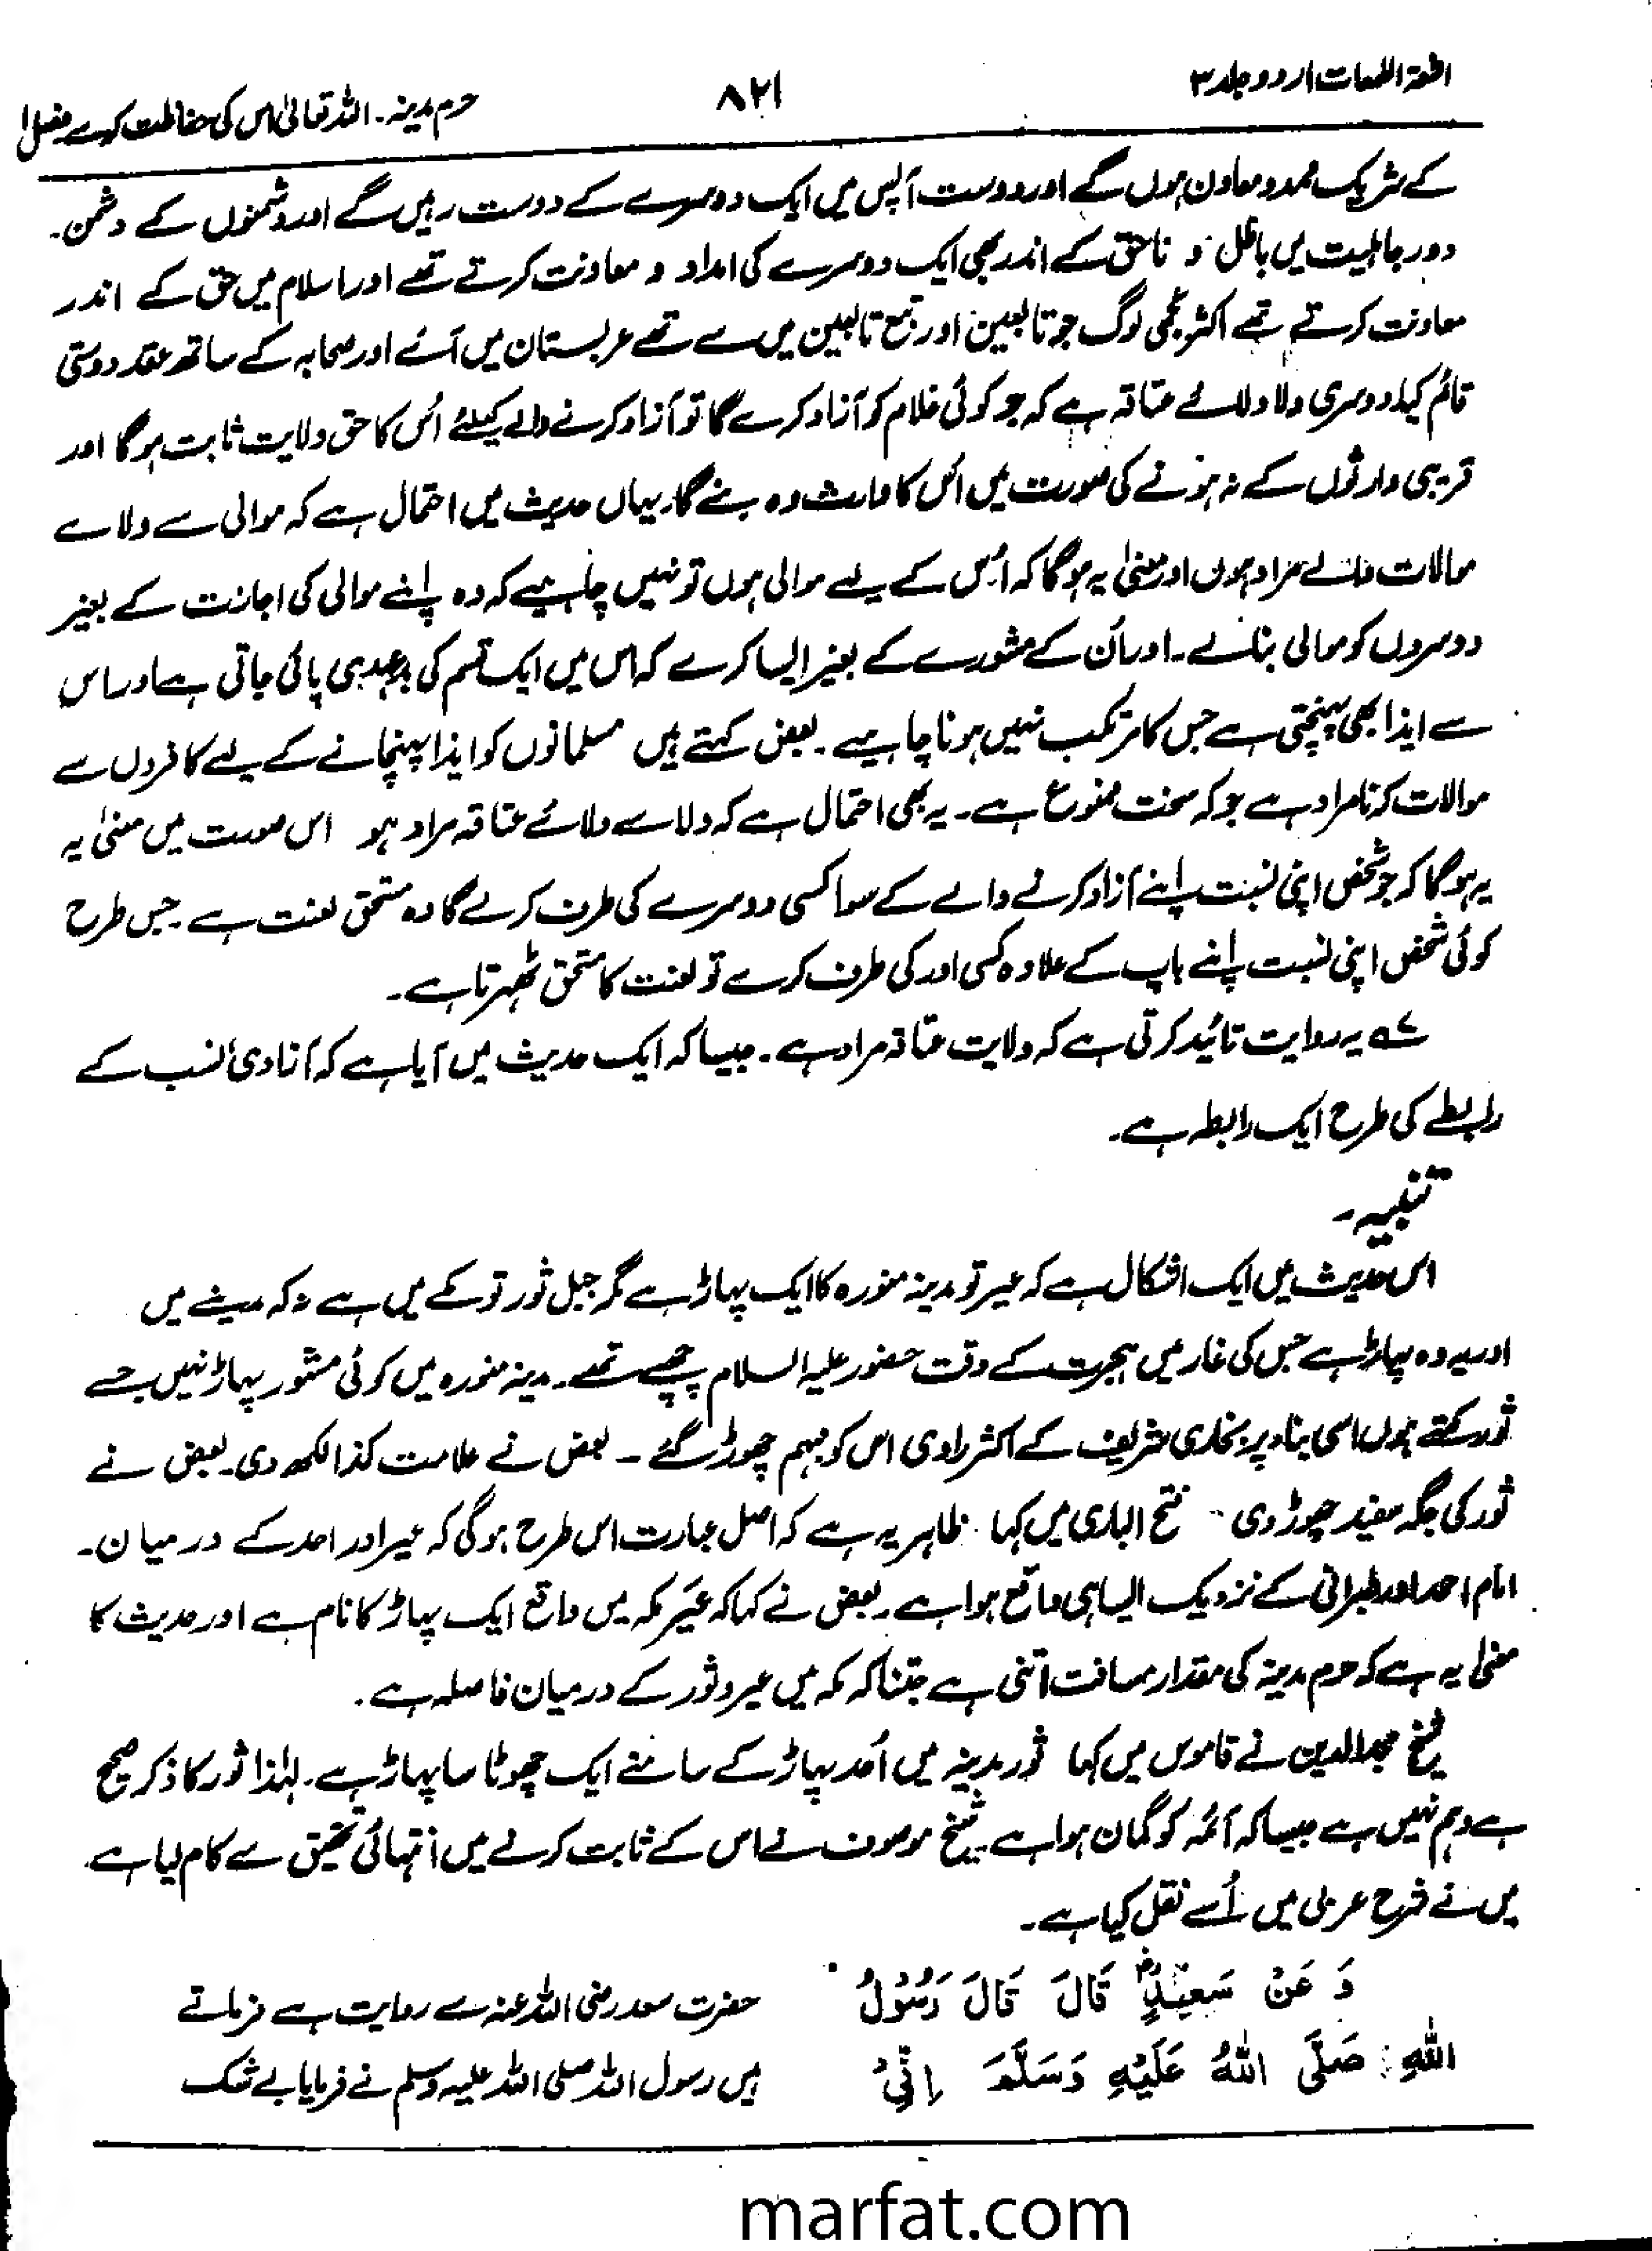 اشعۃ اللمعات اردو جلد ۳
۸۲۱
حرم مدینہ۔ اللہ تعالیٰ اس کی حفاظت کرے فصل ۱
کے شریک ممد و معاون ہوں گے اور دوست آپس میں ایک دوسرے کے دوست رہیں گے اور دشمنوں کے دشمن۔
دور جاہلیت میں باطل و ناحق کے اندر بھی ایک دوسرے کی امداد و معاونت کرتے تھے اور اسلام میں حق کے اندر
معاونت کرتے تھے اکثر عجمی لوگ جو تابعین اور تبع تابعین میں سے تھے عربستان میں آئے اور صحابہ کے ساتھ عقد دوستی
قائم کیا۔ دوسری ولا ولائے عتاقہ ہے کہ جو کوئی غلام کو آزاد کرے گا تو آزاد کرنے والے کیلئے اُس کا حق ولایت ثابت ہوگا اور
قریبی وارثوں کے نہ ہونے کی صورت میں اُس کا وارث وہ بنے گا۔ یہاں حدیث میں احتمال ہے کہ موالی سے ولاے
موالات والے مراد ہوں اور معنیٰ یہ ہوگا کہ اُس کے لیے موالی ہوں تو نہیں چاہیے کہ وہ اپنے موالی کی اجازت کے بغیر
دوسروں کو موالی بنالے۔ اور اُن کے مشورے کے بغیر ایسا کرے کہ اس میں ایک قسم کی بدعہدی پائی جاتی ہے اور اس
سے ایذا بھی پہنچتی ہے جس کا مرتکب نہیں ہونا چاہیے۔ بعض کہتے ہیں مسلمانوں کو ایذا پہنچانے کے لیے کافروں سے
موالات کرنا مراد ہے جو کہ سخت ممنوع ہے۔ یہ بھی احتمال ہے کہ ولاے ولائے عتاقہ مراد ہو اس صورت میں معنیٰ یہ
یہ ہوگا کہ جو شخص اپنی نسبت اپنے آزاد کرنے والے کے سوا کسی دوسرے کی طرف کرے گا وہ مستحق لعنت ہے۔ جس طرح
کوئی شخص اپنی نسبت اپنے باپ کے علاوہ کسی اور کی طرف کرے تو لعنت کا مستحق ٹھہرتا ہے۔
یہ روایت تائید کرتی ہے کہ ولایت عتاقہ مراد ہے۔ جیسا کہ ایک حدیث میں آیا ہے کہ آزادی نسب کے
رابطے کی طرح ایک رابطہ ہے۔
تنبیہ۔
اس حدیث میں ایک اشکال ہے کہ عیر تو مدینہ منورہ کا ایک پہاڑ ہے مگر جبل ثور تو مکے میں ہے نہ کہ مدینے میں
اور یہ وہ پہاڑ ہے جس کی غار میں ہجرت کے وقت حضور علیہ السلام چھپے تھے۔ مدینہ منورہ میں کوئی مشہور پہاڑ نہیں جسے
ثور کہتے ہوں اسی بناء پر بخاری شریف کے اکثر راوی اس کو مبہم چھوڑ گئے ۔ بعض نے علامت کذا لکھ دی۔ بعض نے
ثور کی جگہ سفید چھوڑ دی ۔ فتح الباری میں کہا ظاہر یہ ہے کہ اصل عبارت اس طرح ہوگی کہ عیر اور احد کے درمیان۔
امام احمد اور طبرانی کے نزدیک ایسا ہی واقع ہوا ہے۔ بعض نے کہا کہ عَیر مکہ میں واقع ایک پہاڑ کا نام ہے اور حدیث کا
معنیٰ یہ ہے کہ حرم مدینہ کی مقدار مسافت اتنی ہے جتنا کہ مکہ میں عیر و ثور کے درمیان فاصلہ ہے۔
شیخ مجدالدین نے قاموس میں کہا ثور مدینہ میں اُحد پہاڑ کے سامنے ایک چھوٹا سا پہاڑ ہے۔ لہٰذا ثور کا ذکر صحیح
ہے وہم نہیں ہے جیسا کہ آئمہ کو گمان ہوا ہے۔ شیخ موصوف نے اس کے ثابت کرنے میں انتہائی تحقیق سے کام لیا ہے۔
میں نے شرح عربی میں اُسے نقل کیا ہے۔
وَ عَنْ سَعِیْدٍ قَالَ قَالَ رَسُوْلُ
اللّٰہِ صَلَّی اللّٰہُ عَلَیْہِ وَسَلَّمَ اِنِّیْ
حضرت سعد رضی اللہ عنہ سے روایت ہے فرماتے
ہیں رسول اللہ صلی اللہ علیہ وسلم نے فرمایا بے شک
marfat.com